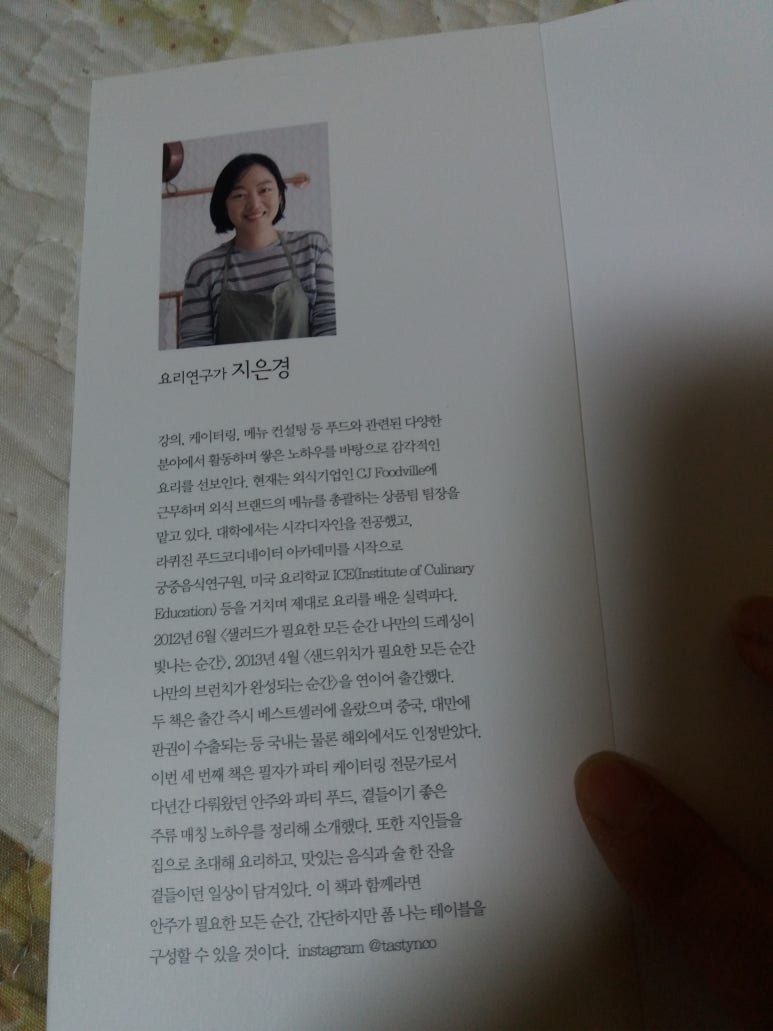 요리연구가 지은경
강의, 케이터링, 메뉴 컨설팅 등 푸드와 관련된 다양한
분야에서 활동하며 쌓은 노하우를 바탕으로 감각적인
요리를 선보인다. 현재는 외식기업인 CJ Foodville에
근무하며 외식 브랜드의 메뉴를 총괄하는 상품팀 팀장을
맡고 있다. 대학에서는 시각디자인을 전공했고,
라퀴진 푸드코디네이터 아카데미를 시작으로
궁중음식연구원, 미국 요리학교 ICE(Institute of Culinary
Education) 등을 거치며 제대로 요리를 배운 실력파다.
2012년 6월 〈샐러드가 필요한 모든 순간 나만의 드레싱이
빛나는 순간〉, 2013년 4월 〈샌드위치가 필요한 모든 순간
나만의 브런치가 완성되는 순간〉을 연이어 출간했다.
두 책은 출간 즉시 베스트셀러에 올랐으며 중국, 대만에
판권이 수출되는 등 국내는 물론 해외에서도 인정받았다.
이번 세 번째 책은 필자가 파티 케이터링 전문가로서
다년간 다뤄왔던 안주와 파티 푸드, 곁들이기 좋은
주류 매칭 노하우를 정리해 소개했다. 또한 지인들을
집으로 초대해 요리하고, 맛있는 음식과 술 한 잔을
곁들이던 일상이 담겨있다. 이 책과 함께라면
안주가 필요한 모든 순간, 간단하지만 폼 나는 테이블을
구성할 수 있을 것이다. instagram @tastynco